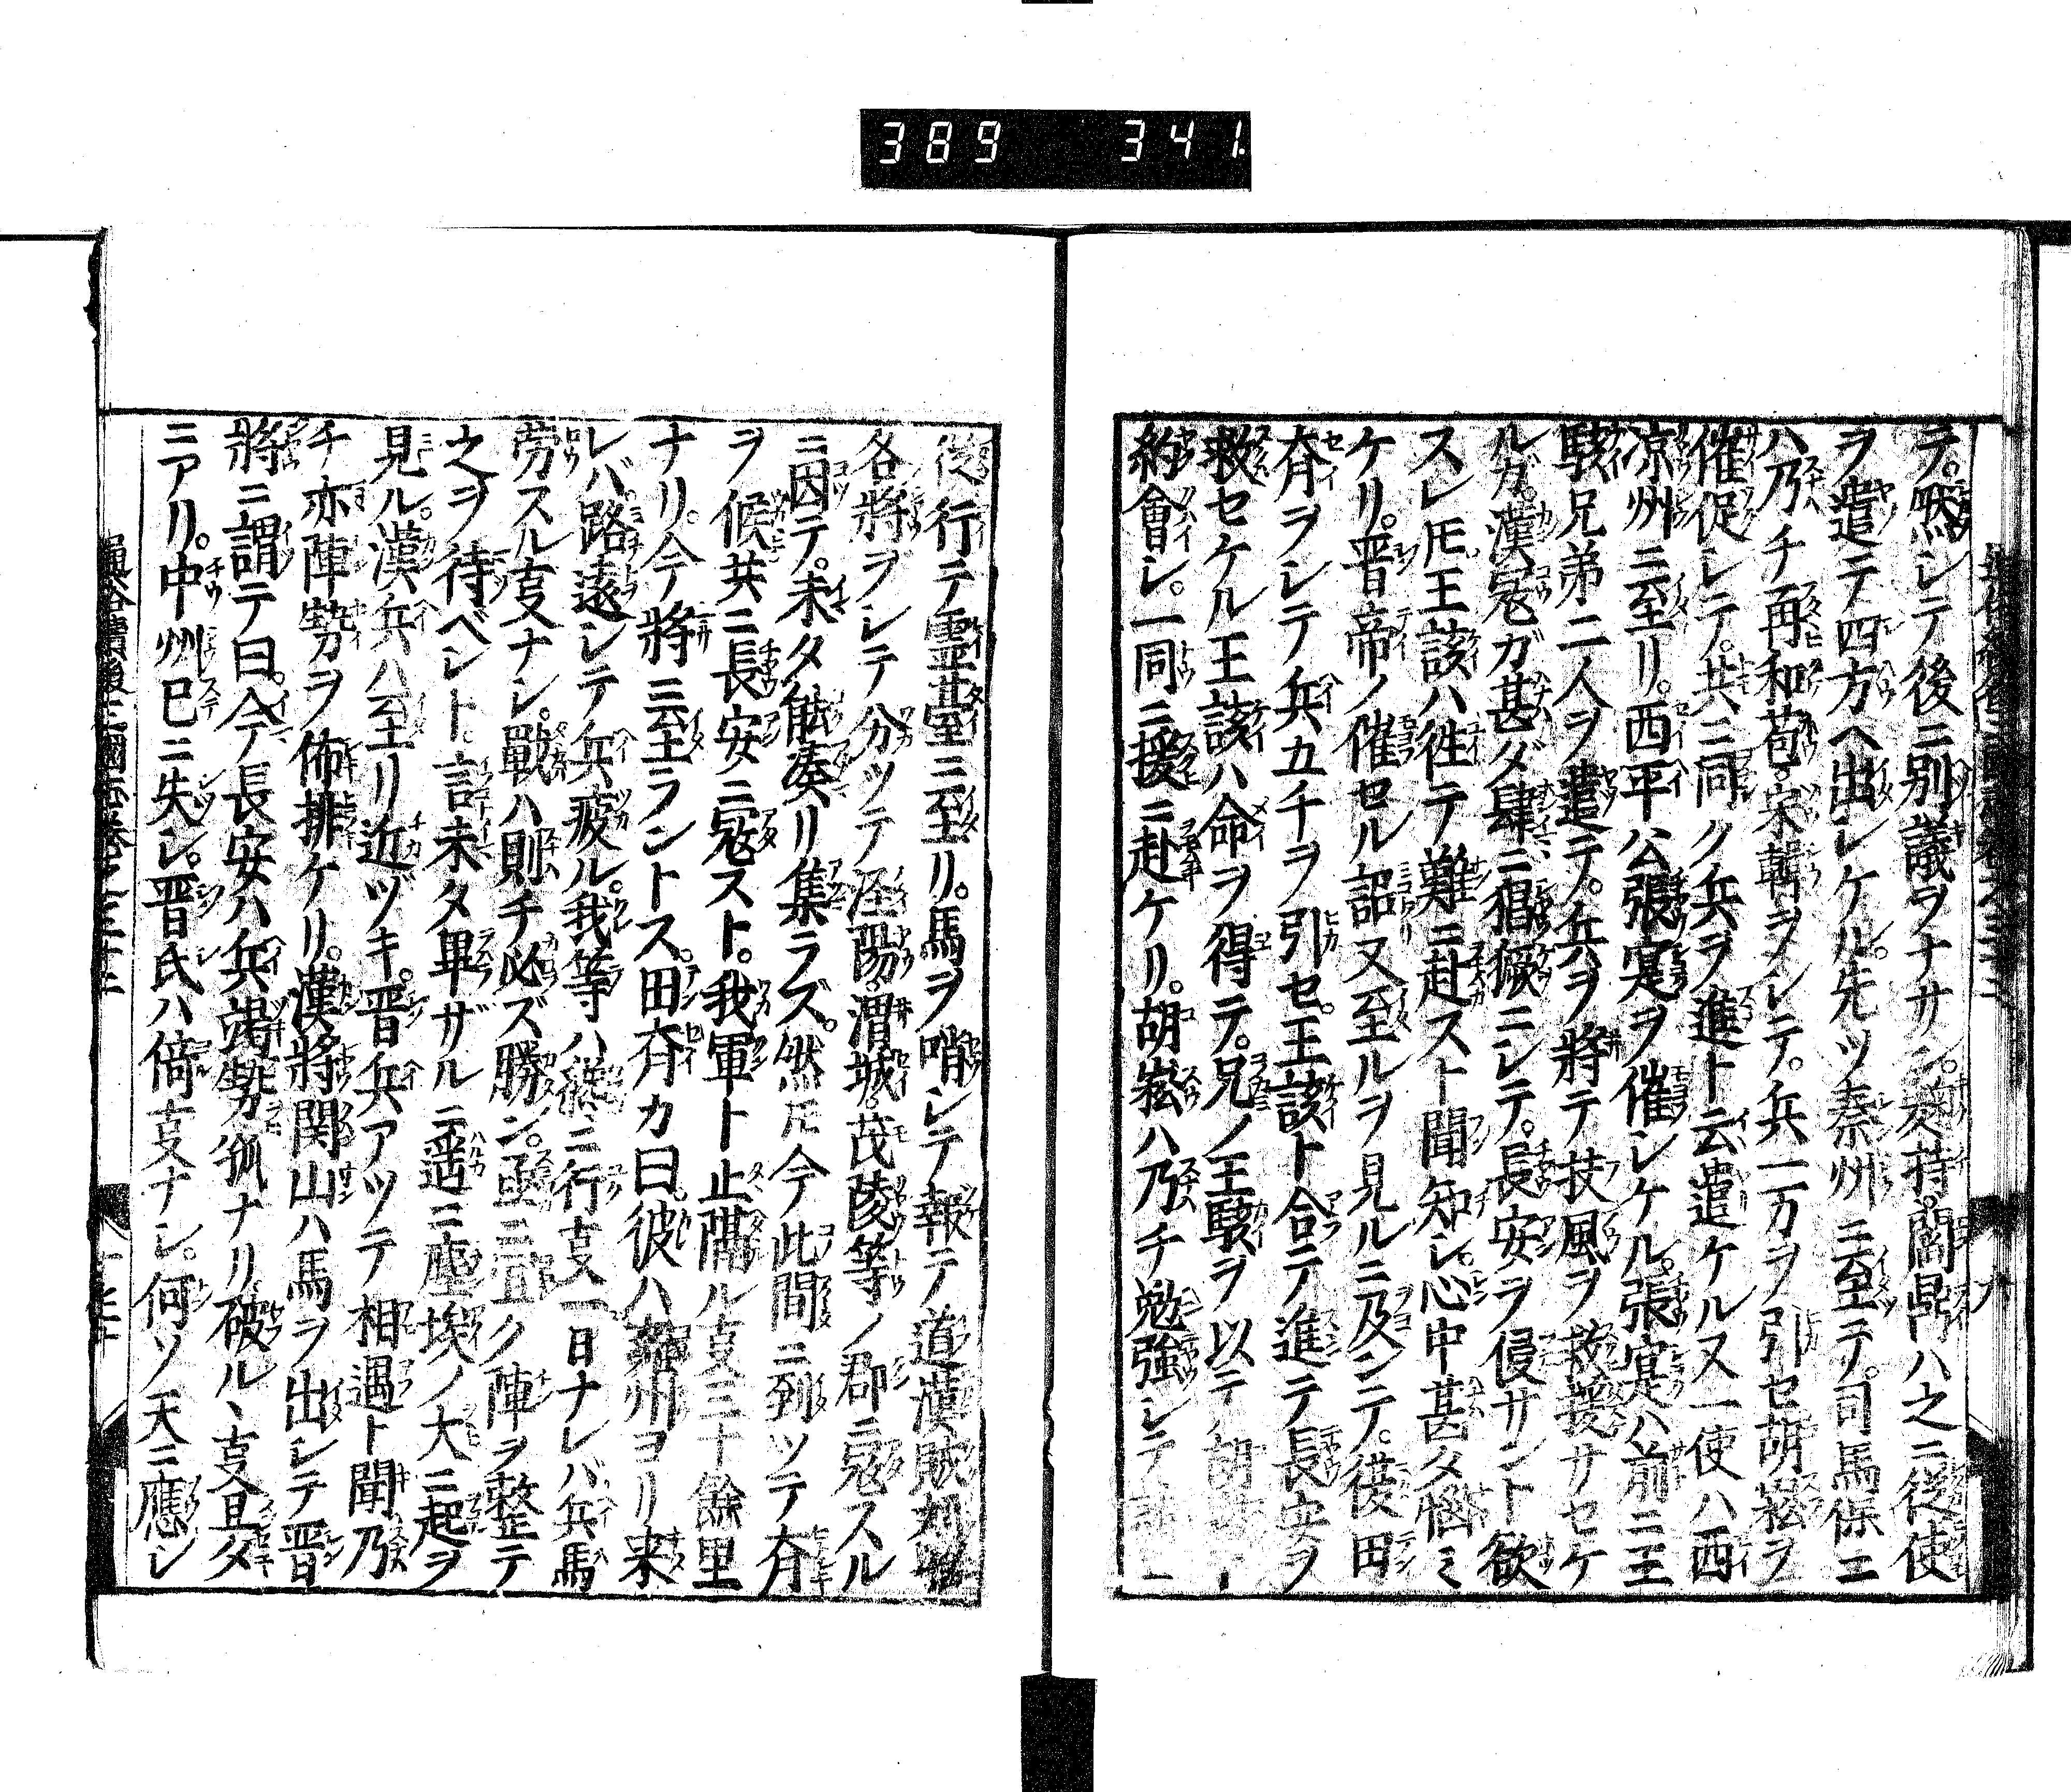 389 341
テ。然シテ後ニ別議ヲナサン。麥持。閻鼎ハ之ニ從使
ヲ遣テ四方ヘ出シケル。先ツ秦州ニ至テ。司馬保ニ
ハ乃チ再和苞。宋輯ヲメシテ。兵一万ヲ引セ胡崧ヲ
催促シテ。共ニ同ク兵ヲ進ト云遣ケル又一使ハ西
凉州ニ至リ。西平公張寔ヲ催シケル。張寔ハ前ニ王
駭兄弟二人ヲ遣テ。兵ヲ將テ扶風ヲ救援サセケ
ルガ。漢冦ガ甚ダ肆ニ猖獗ニシテ。長安ヲ侵サント欲
スレ𪜈王該ハ徃テ難ニ赴スト聞知シ。心中甚タ惱ミ
ケリ。晋帝ノ催セル詔又至ルヲ見ルニ及ンテ。復田
齊ヲシテ兵五千ヲ引セ。王該ト合テ進テ長安ヲ
救セケル王該ハ命ヲ得テ。兄ノ王駭ヲ以テ胡
約會シ。一同ニ援ニ赴ケリ。胡崧ハ乃チ勉強シテ
從行テ靈臺ニ至リ。馬ヲ哨シテ報テ道漢賊刘
各將ヲシテ分ツテ涇陽。渭城。茂陵等ノ郡ニ冦スル
ニ因テ。未タ能湊リ集ラズ。然𪜈今此間ニ到ツテ齊
ヲ候共ニ長安ニ冦スト。我軍ト止隔ル叓三十餘里
ナリ。今將ニ至ラントス。田齊カ曰。彼ハ雍州ヨリ来
レバ。路遠シテ兵疲ル。我等ハ緩ニ行叓一日ナレバ兵馬
労スル叓ナシ。戰ハ則チ必ズ勝ン。亟ニ宜ク陣ヲ整テ
之ヲ待ベシト。言未タ畢ザルニ遥ニ塵埃ノ大ニ起ヲ
見ル。漢兵ハ至リ近ヅキ。晋兵アツテ相遇ト聞乃
チ亦陣勢ヲ佈排ケリ。漢將関山ハ馬ヲ出シテ晋
將ニ謂テ曰。今長安ハ兵竭勢孤ナリ。破ル丶叓旦夕
ニアリ。中州已ニ失シ。晋氏ハ倚叓ナシ。何ソ天ニ應シ